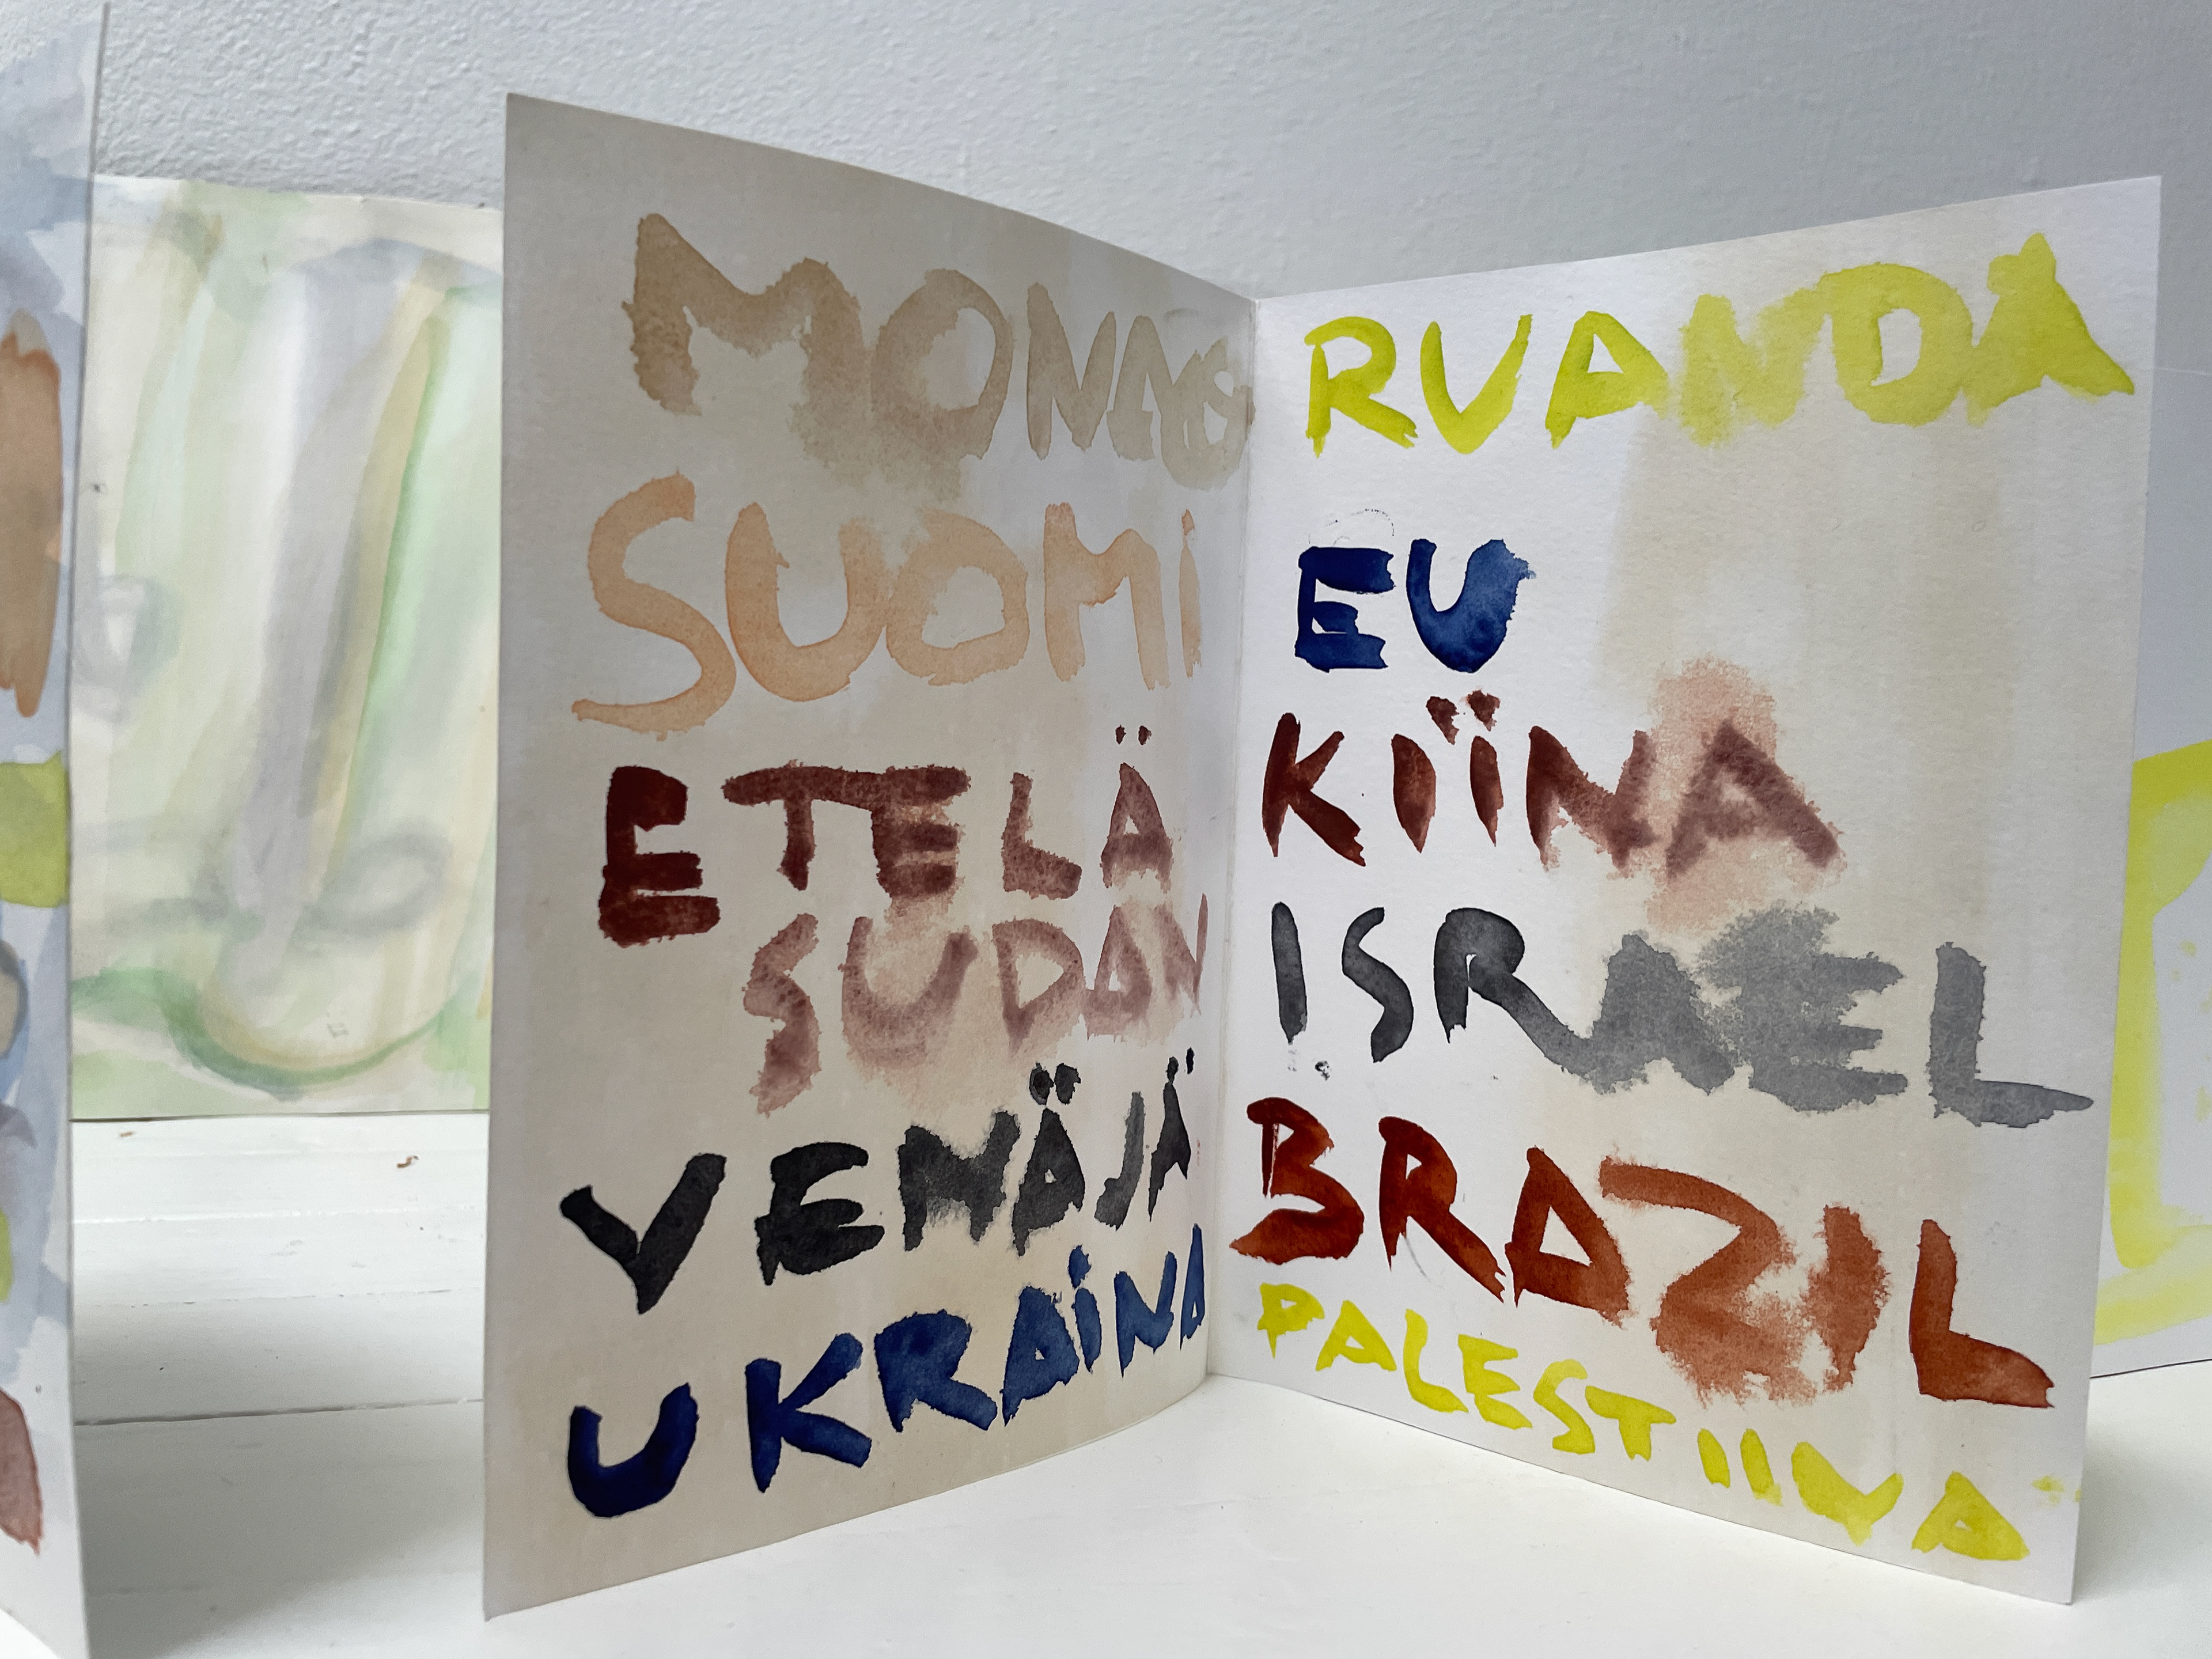 SUOMI
ETELÄ
SUDAN
VENÄJÄ
UKRAINA
RUANDA
EU
KIINA
ISRAEL
BRAZIL
PALESTIINA